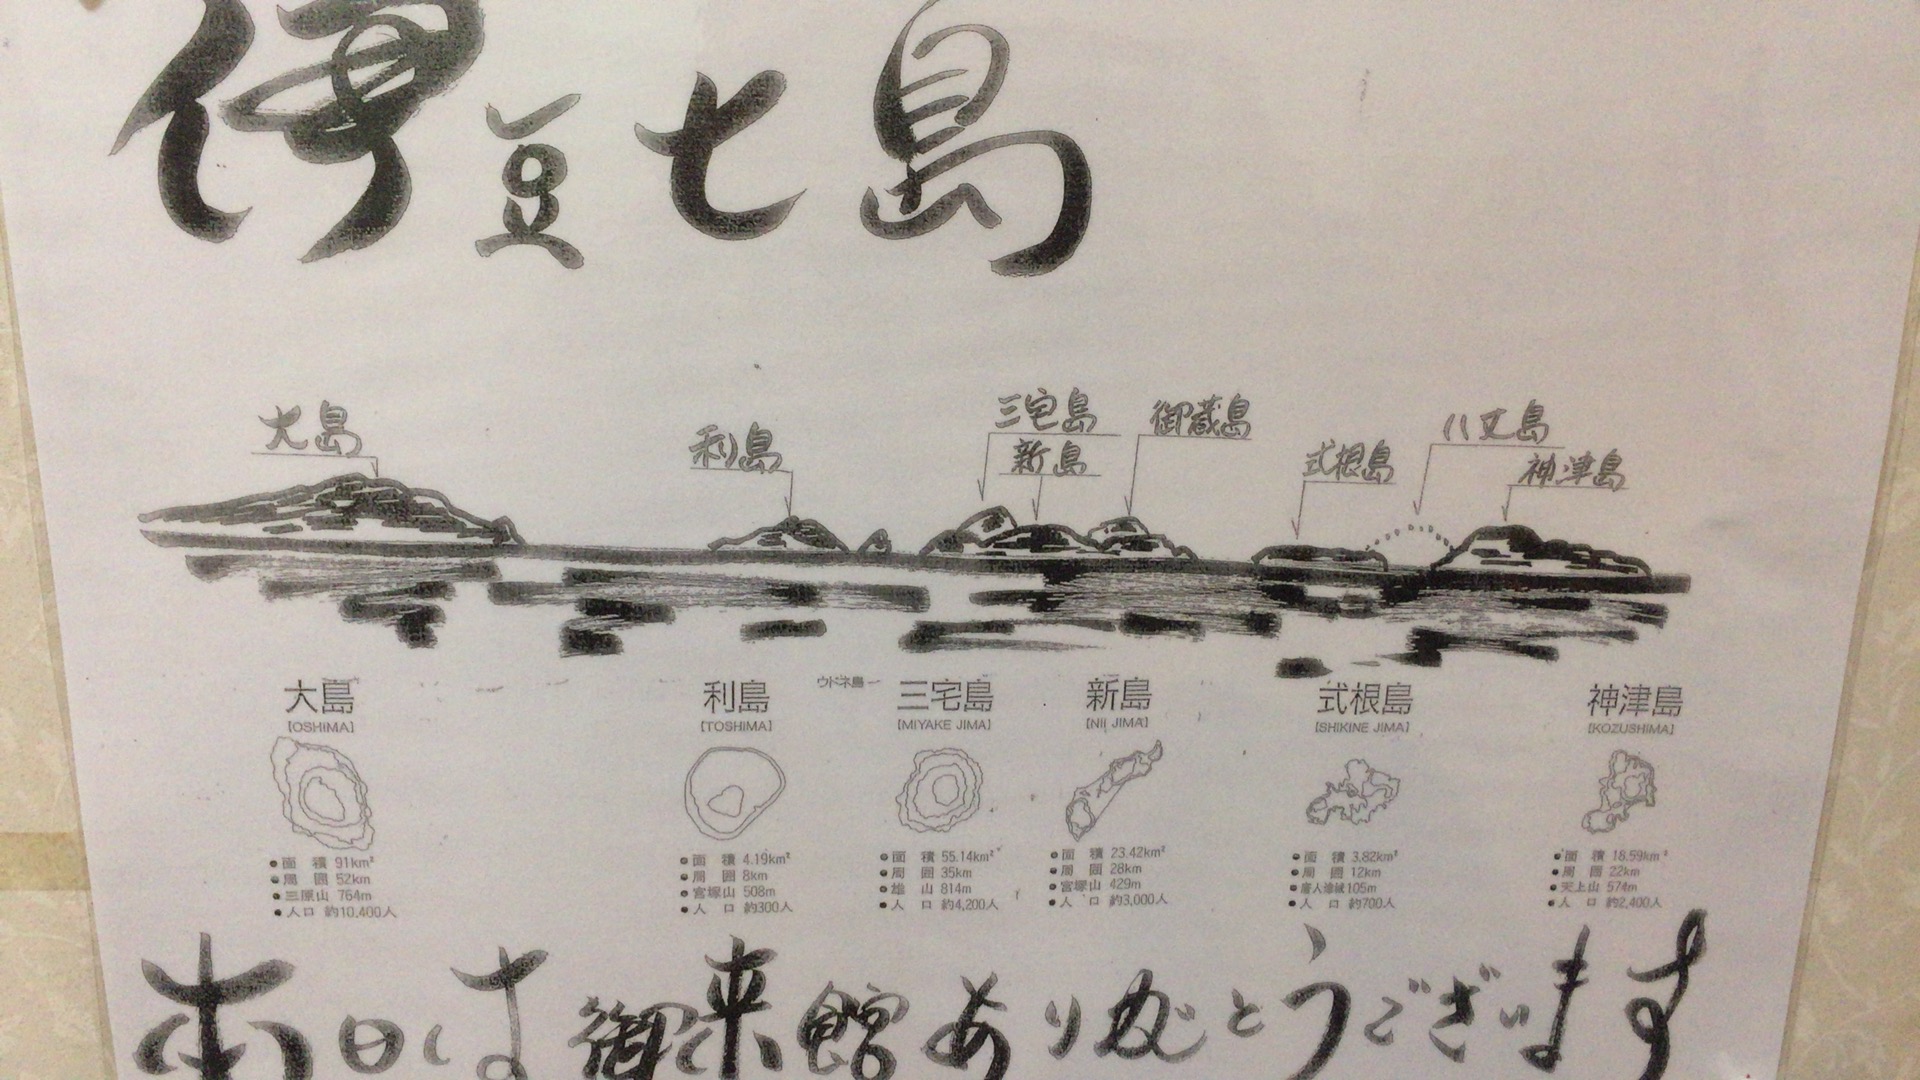 伊豆七島
大島
利島
三宅島
新島
御蔵島
式根島
八丈島
神津島
大島
[OSHIMA]
●面 積 91km²
●周 囲 52km
●三原山 764m
●人口 約10,400人
利島
[TOSHIMA]
●面 積 4.19km²
●周 囲 8km
●宮塚山 508m
●人 口 約300人
ウドネ島
三宅島
[MIYAKE JIMA]
●面 積 55.14km²
●周 囲 35km
●雄 山 814m
●人 口 約4,200人
新島
[NII JIMA]
●面 積 23.42km²
●周 囲 28km
●宮塚山 429m
●人 口 約3,000人
式根島
[SHIKINE JIMA]
●面 積 3.82km²
●周 囲 12km
105m
●人 口 約700人
神津島
[KOZUSHIMA]
●面 積 18.59km²
●周 囲 22km
●天上山 574m
●人 口 約2,400人
本日は御来館ありがとうございます